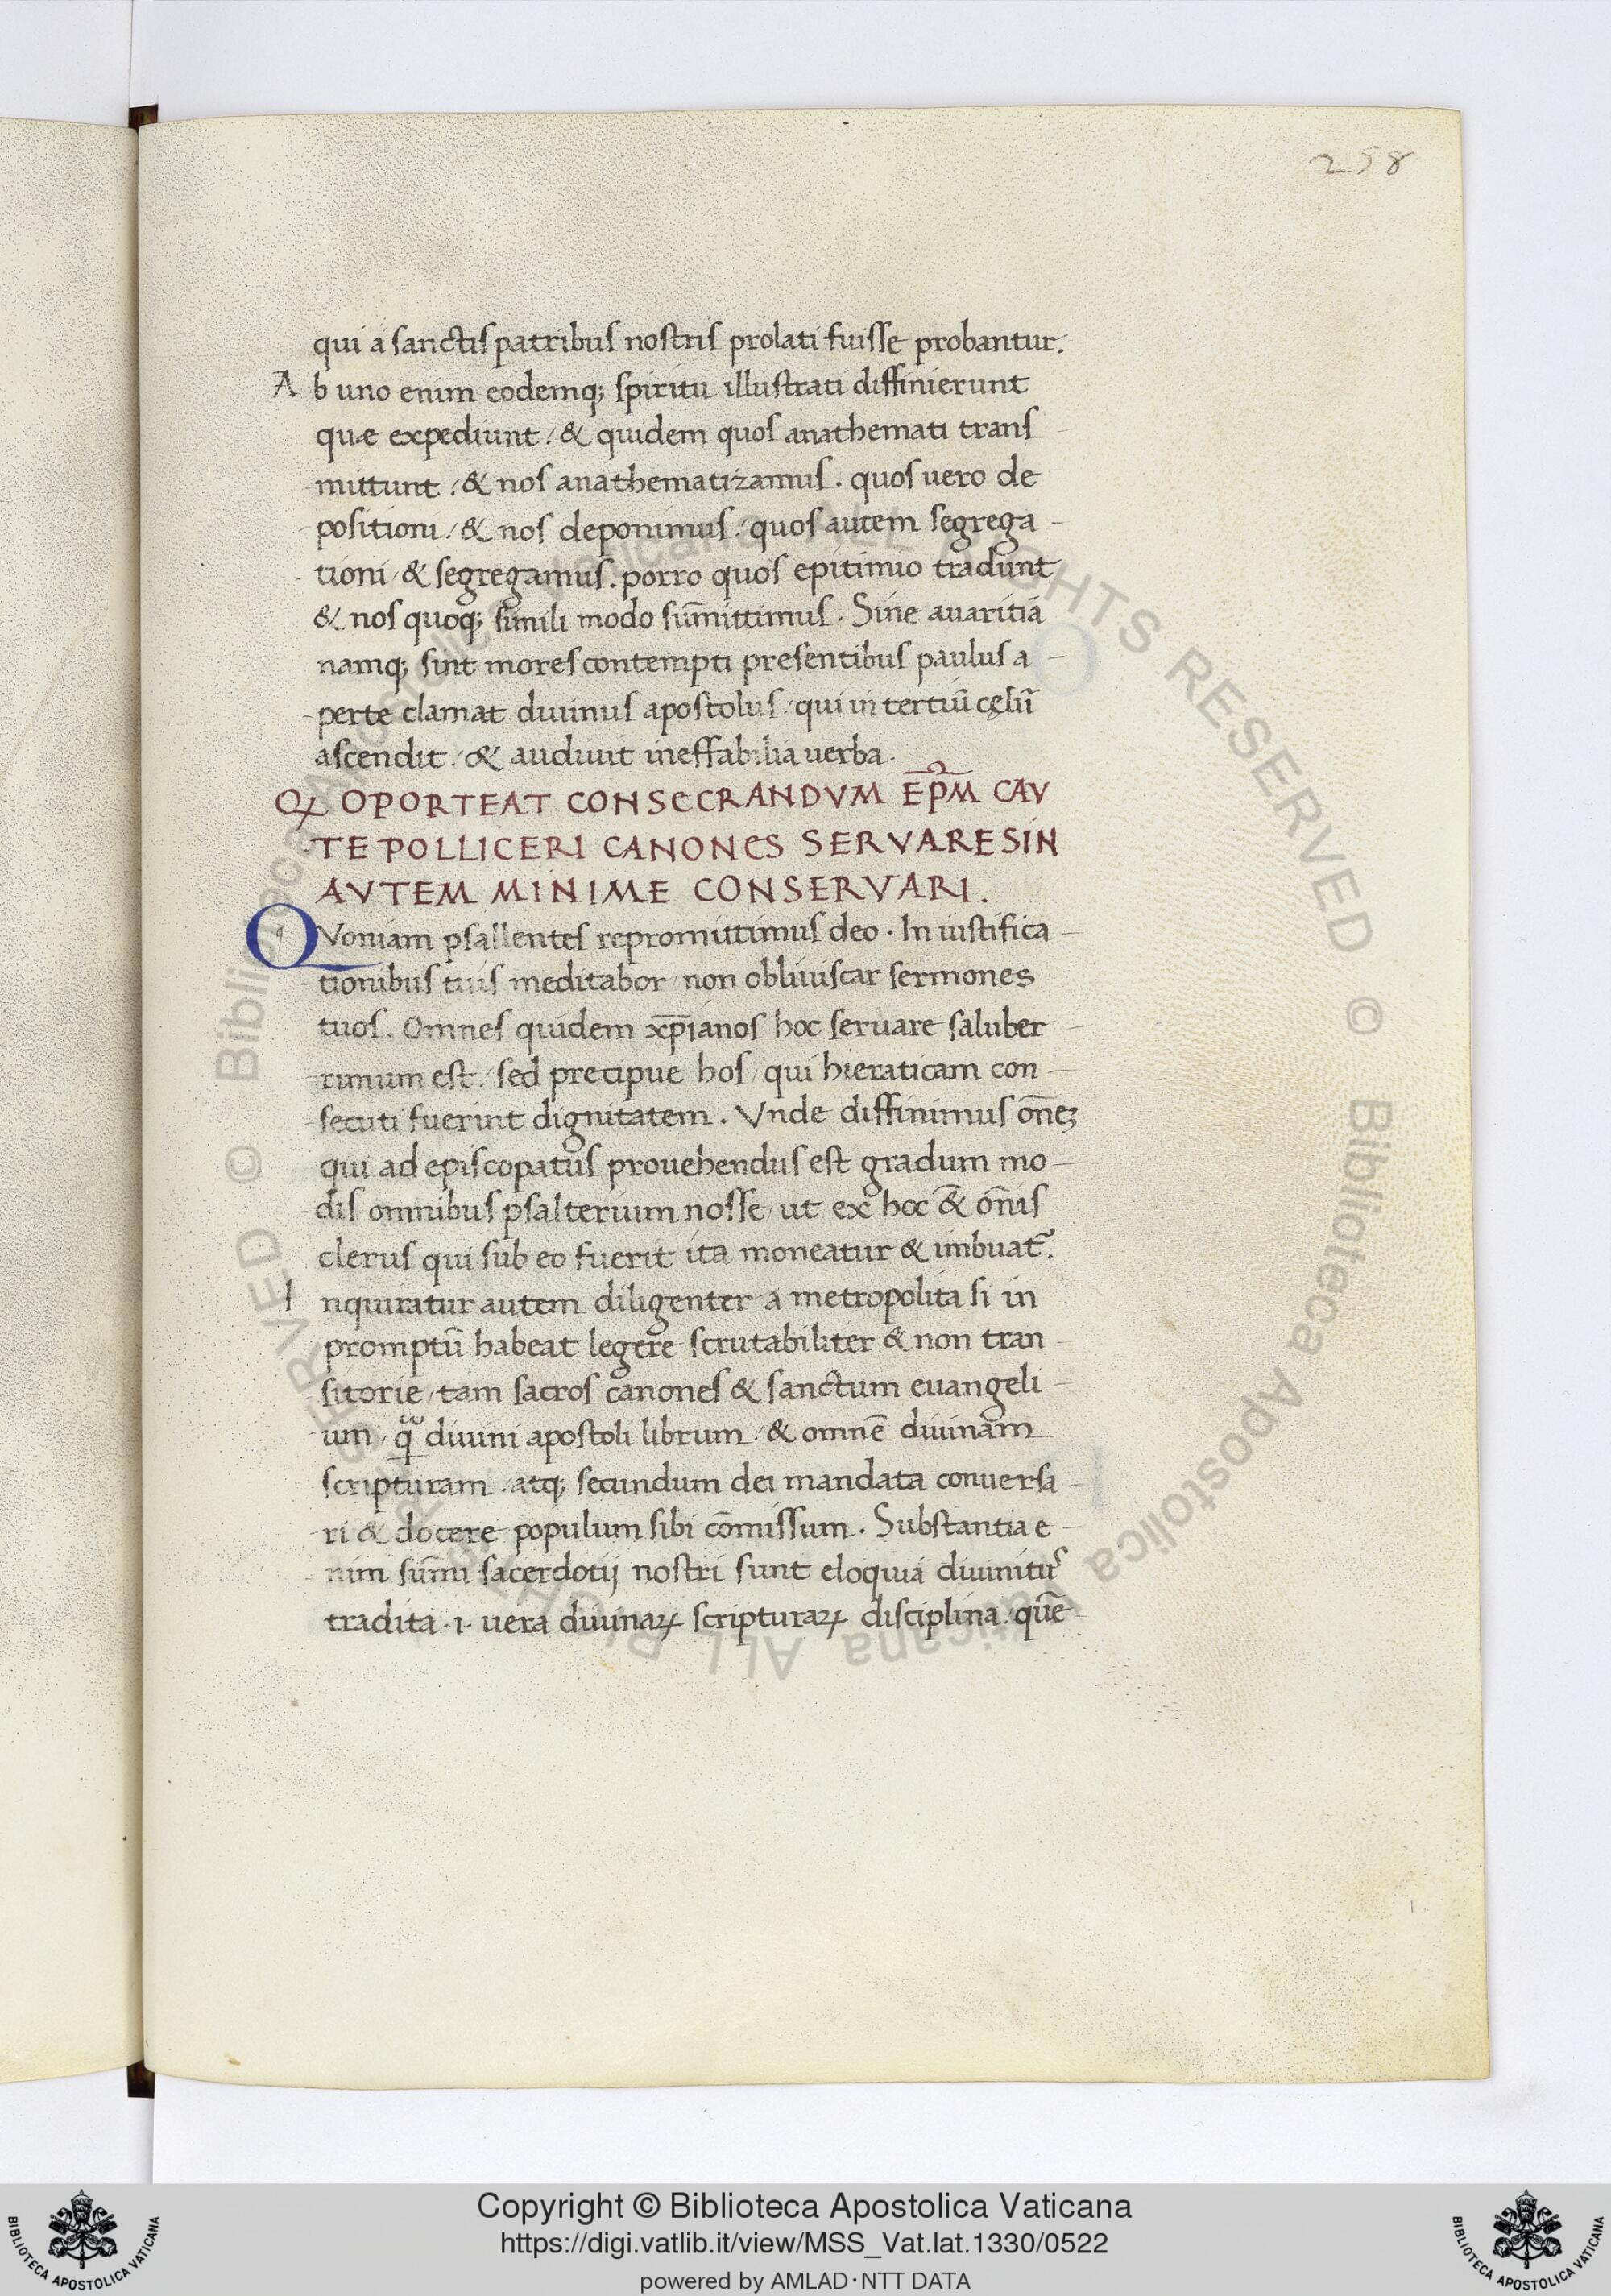 258
qui a sanctis patribus nostris prolati fuisse probantur.
Ab uno enim eodemq; spiritu illustrati diffinierunt
quæ expediunt / & quidem quos anathemati trans
mittunt / & nos anathematizamus . quos uero de
positioni / & nos deponimus / quos autem segrega -
tioni / & segregamus . porro quos epitimio tradunt
& nos quoq; simili modo sum̄ittimus . Sine auaritia
namq; sint mores contempti presentibus paulus a -
perte clamat diuinus apostolus / qui in tertiū cęlū
ascendit / & audiuit ineffabilia uerba .
QꝪ OPORTEAT CONSECRANDVM EP̄M CAV
TE POLLICERI CANONES SERVARE SIN
AVTEM MINIME CONSERVARI .
QVoniam psallentes repromittimus deo . In iustifica -
tionibus tuis meditabor / non obliuiscar sermones
tuos . Omnes quidem xp̄ianos hoc seruare saluber -
rimum est / sed precipue hos / qui hieraticam con -
secuti fuerint dignitatem . Vnde diffinimus om̄eꝫ
qui ad episcopatus prouehendus est gradum mo -
dis omnibus psalterium nosse / ut ex hoc & om̄is
clerus qui sub eo fuerit ita moneatur & imbuat᷑.
Inquiratur autem diligenter a metropolita si in
promptū habeat legere scrutabiliter & non tran -
sitorie / tam sacros canones & sanctum euangeli -
um / diuini apostoli librum / & omnē diuinam
scripturam / atq; secundum dei mandata conuersa -
ri & docere populum sibi cōmissum . Substantia e -
nim sum̄i sacerdotij nostri sunt eloquia diuinitus
tradita . i . uera diuinaꝝ scripturaꝝ disciplina / quē
© Biblioteca Apostolica Vaticana ALL RIGHTS RESERVED © Biblioteca Apostolica Vaticana ALL RIGHTS RESERVED
BIBLIOTECA APOSTOLICA VATICANA
Copyright © Biblioteca Apostolica Vaticana
https://digi.vatlib.it/view/MSS_Vat.lat.1330/0522
powered by AMLAD･NTT DATA
BIBLIOTECA APOSTOLICA VATICANA